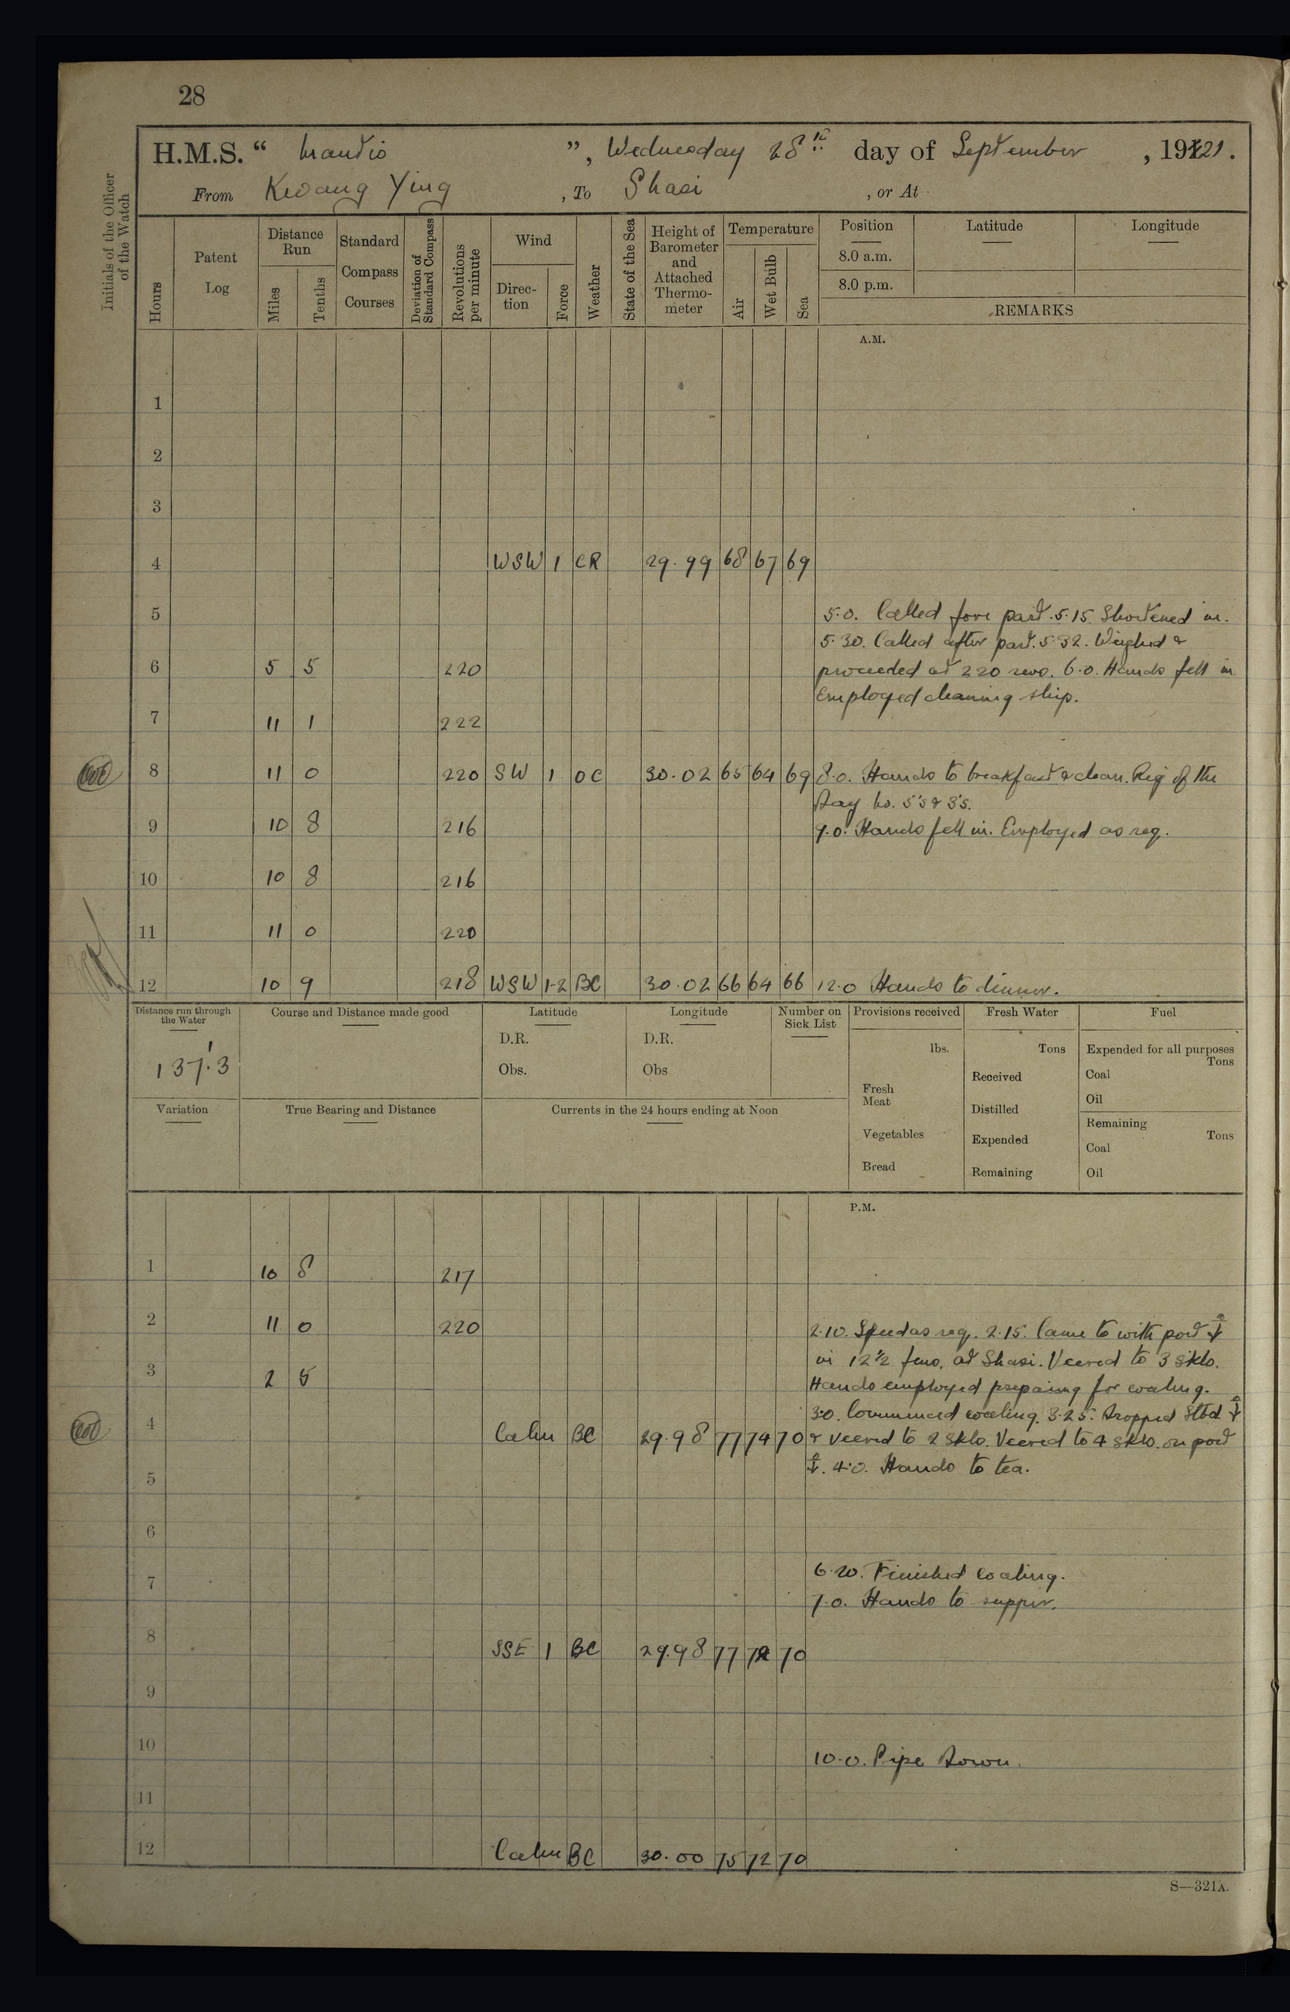 28
H.M.S. " Mantis ", Wednesday 28th day of September, 1921.
From Kwang Ying, To Shasi, or At
Initials of the Officer of the Watch
Hours
Patent Log
Distance Run
Miles
Tenths
Standard Compass Courses
Deviation of Standard Compass
Revolutions per minute
Wind
Direction
Force
Weather
State of the Sea
Height of Barometer and Attached Thermometer
Temperature
Air
Wet Bulb
Sea
Position
8.0 a.m.
8.0 p.m.
Latitude
Longitude
REMARKS
A.M.
1
2
3
4 WSW 1 CR 29.99 68 67 69
5 5.0. Called fore part. 5.15 Shortened in.
5.30. Called after part. 5.32. Weighed &
6 5 5 220 proceeded at 220 revs. 6.0. Hands fell in
Employed cleaning ship.
7 11 1 222
8 11 0 220 SW 1 OC 30.02 65 64 69 8.0. Hands to breakfast & clean. Rig of the
Day No. 5's & 3's.
9 10 8 216 9.0. Hands fell in. Employed as req.
10 10 8 216
11 11 0 220
12 10 9 218 WSW 1-2 BC 30.02 66 64 66 12.0 Hands to dinner.
Distance run through the Water
137'.3
Course and Distance made good
Latitude
D.R.
Obs.
Longitude
D.R.
Obs
Number on Sick List
Provisions received
lbs.
Fresh Meat
Vegetables
Bread
Fresh Water
Tons
Received
Distilled
Expended
Remaining
Fuel
Expended for all purposes
Tons
Coal
Oil
Remaining
Tons
Coal
Oil
Variation
True Bearing and Distance
Currents in the 24 hours ending at Noon
P.M.
1 10 8 217
2 11 0 220 2.10. Speed as req. 2.15. Came to with port ⚓
in 12½ fms. at Shasi. Veered to 3 skls.
3 2 5 Hands employed preparing for coaling.
3.0. Commenced coaling. 3.25. Dropped Stbd ⚓
4 Calm BC 29.98 77 74 70 & veered to 2 skls. Veered to 4 skls. on port
⚓. 4.0. Hands to tea.
5
6
6.20. Finished coaling.
7 7.0. Hands to supper.
8 SSE 1 BC 29.98 77 72 70
9
10 10.0. Pipe Down.
11
12 Calm BC 30.00 75 72 70
S—321A.